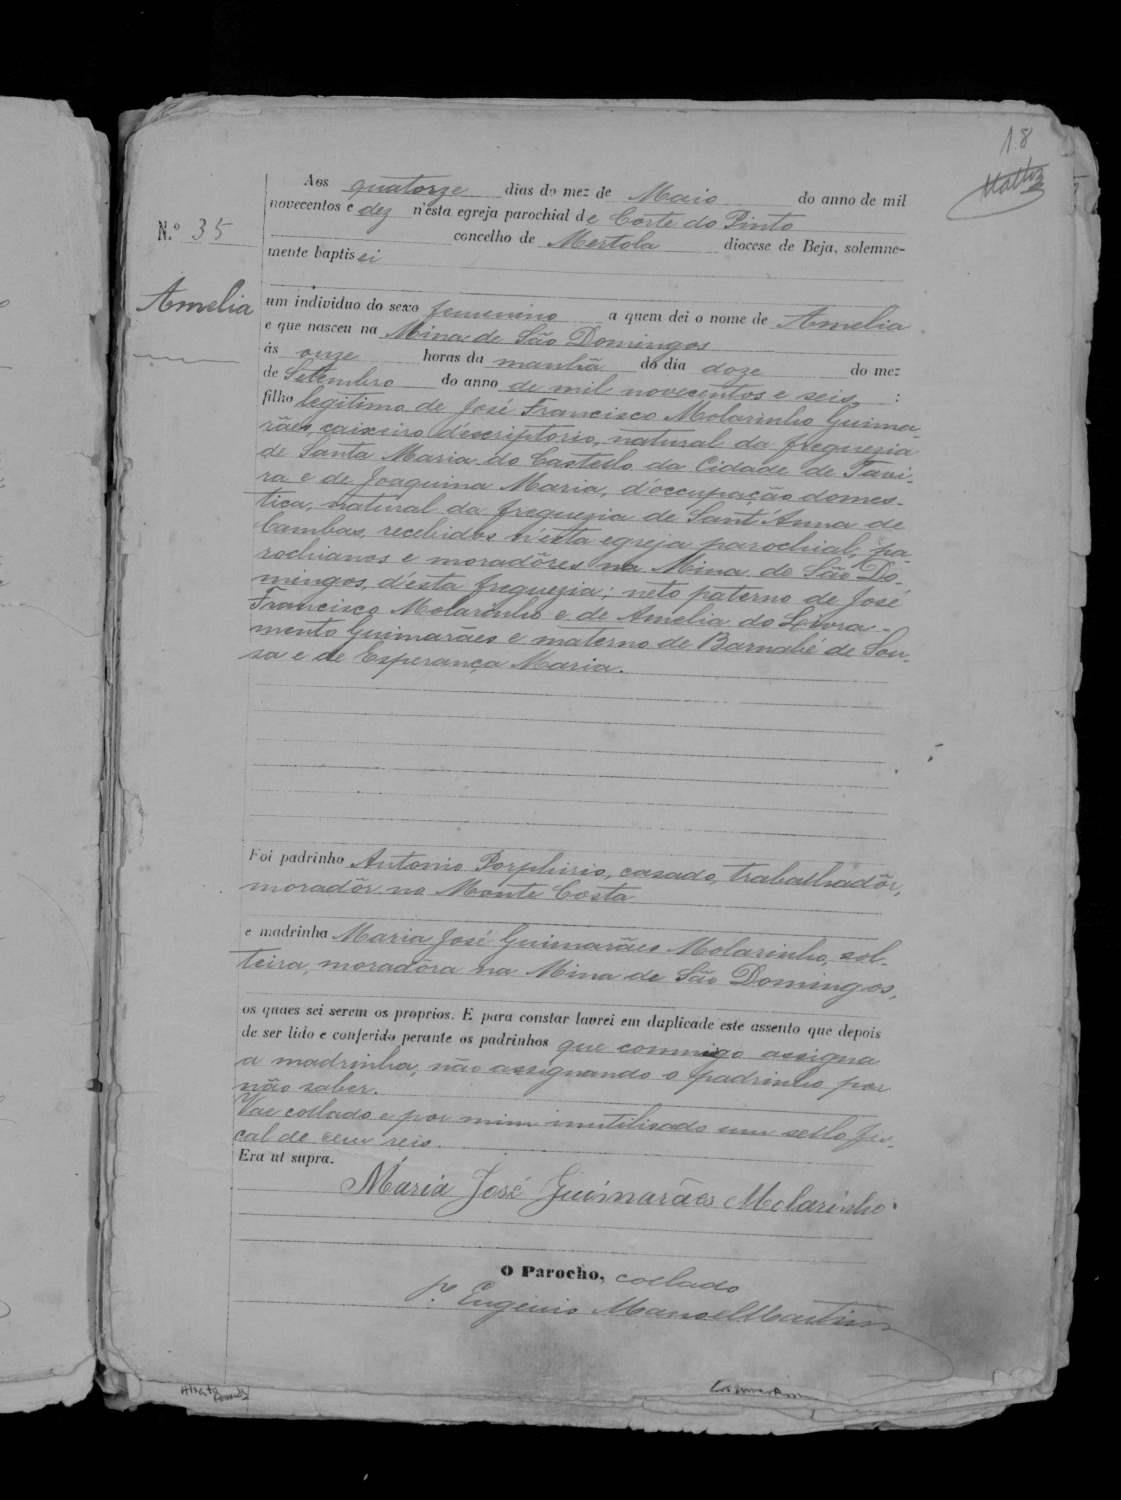 18
Mattos
Aos quatorze dias do mez de Maio do anno de mil
novecentos e dez n'esta egreja parochial de Côrte do Pinto
N.º 35
concelho de Mertola diocese de Beja, solemne-
mente baptisei
Amelia
um individuo do sexo femenino a quem dei o nome de Amelia
e que nasceu na Mina de São Domingos
ás onze horas da manhã do dia doze do mez
de Setembro do anno de mil novecentos e seis :
filho legitimo de José Francisco Molarinho Guima-
rães, caixeiro d'escriptorio, natural da freguezia
de Santa Maria do Castello da Cidade de Tavi-
ra e de Joaquina Maria, d'occupação domes-
tica, natural da freguezia de Sant'Anna de
Cambas, recebidos n'esta egreja parochial, pa-
rochianos e moradôres na Mina de São Do-
mingos, d'esta freguezia; neto paterno de José
Francisco Molarinho e de Amelia do Livra-
mento Guimarães e materno de Barnabé de Sou-
sa e de Esperança Maria.
Foi padrinho Antonio Porphirio, casado, trabalhadôr,
moradôr no Monte Costa
e madrinha Maria José Guimarães Molarinho, sol-
teira, moradôra na Mina de São Domingos,
os quaes sei serem os proprios. E para constar lavrei em duplicado este assento que depois
de ser lido e conferido perante os padrinhos que commigo assigna
a madrinha, não assignando o padrinho por
não saber.
Vae collado e por mim inutilisado um sello fis-
cal de cem reis.
Era ut supra.
Maria José Guimarães Molarinho
O Parocho, collado
P.e Eugenio Manoel Martins